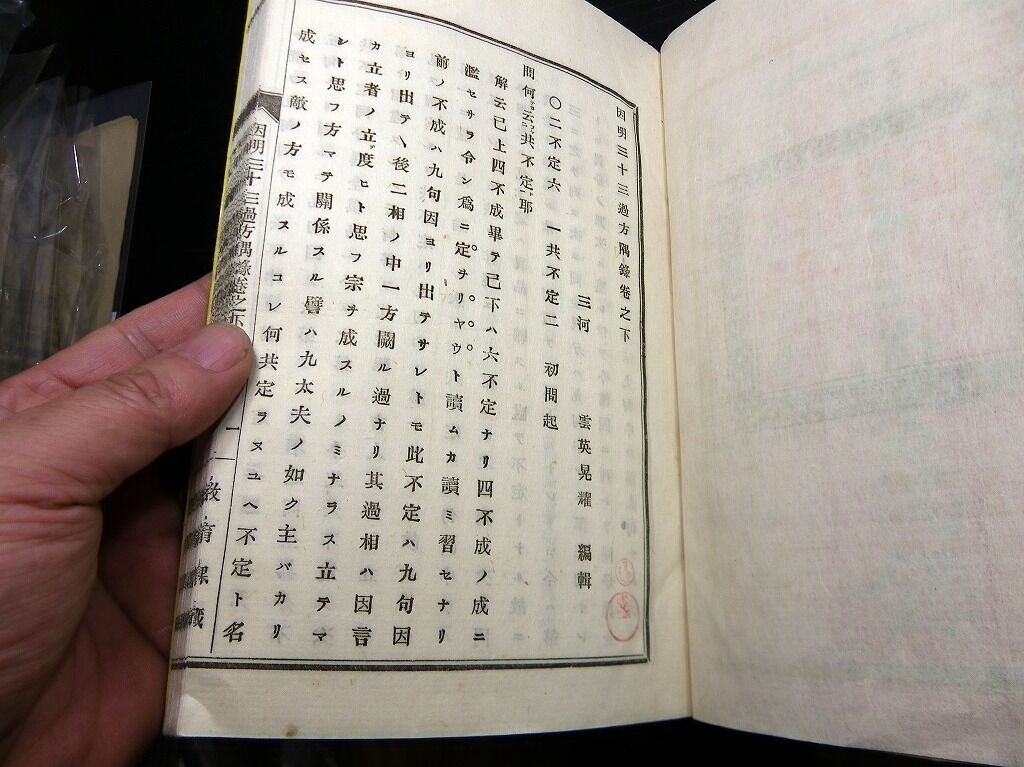 因明三十三過方隅錄卷之下
三河　雲英晃耀　編輯
〇二不定六　一共不定二　初問起
問何云共不定耶
解云已上四不成畢テ已下ハ六不定ナリ四不成ノ成ニ
濫セサラ令シ爲ニ定ヲリヤウト讀ムカ讀ミ習セナリ
前ノ不成ハ九句因ヨリ出テサレトモ此不定ハ九句因
ヨリ出テヽ後二相ノ中一方闕ル過ナリ其過相ハ因言
カ立者ノ立ッ度ヒト思フ宗ヲ成スルノミナラス立テマ
シト思フ方マテ關係スル譬ハ九太夫ノ如ク主バカリ
成セス敵ノ方モ成スルコレ何共定ラヌユヘ不定ト名
因明三十三過方隅錄卷之下
一
教育課